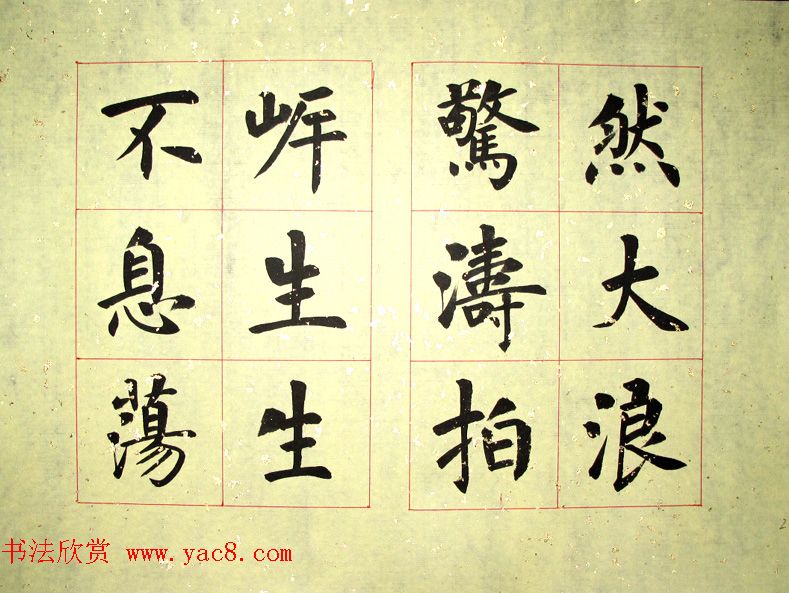 然大浪
驚濤拍
岼生生
不息蕩
书法欣赏 www.yac8.com